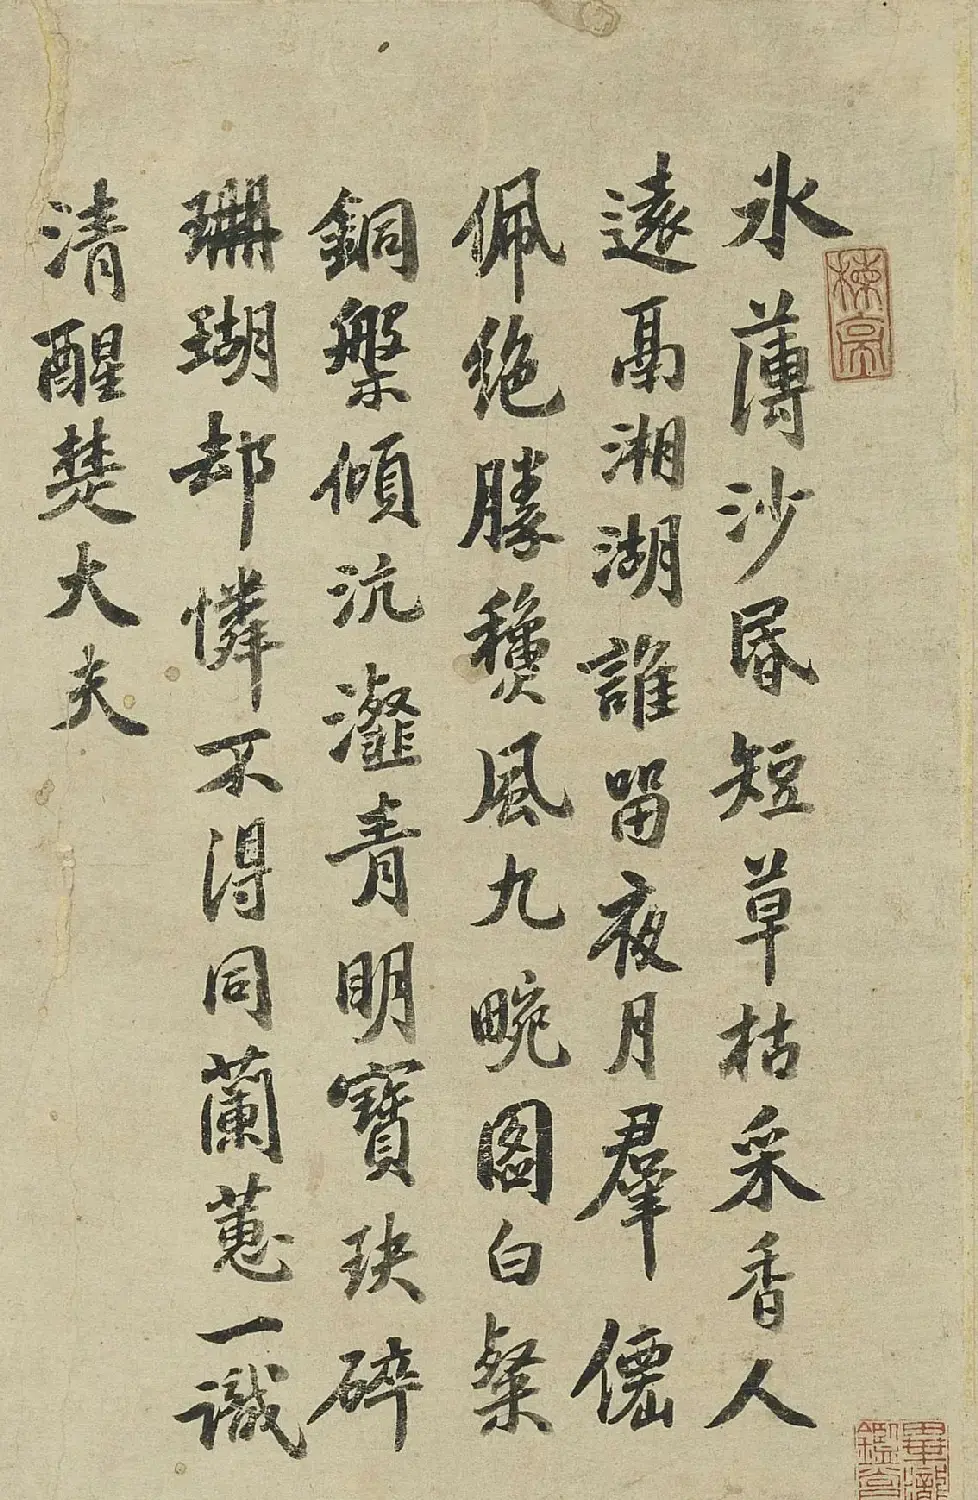 楝亭
氷薄沙昬短草枯采香人
遠鬲湘湖誰留夜月羣僊
佩絶勝穐風九畹圖白粲
銅槃傾沆瀣青明寶玦碎
珊瑚却憐不得同蘭蕙一識
清醒楚大夫
畢瀧
鑑賞